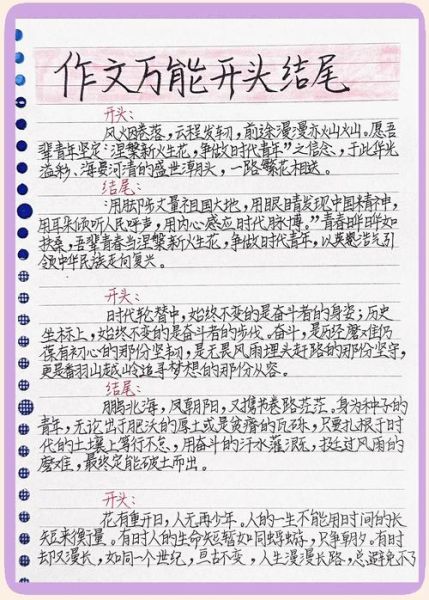 作文万能开头结尾
开头：
风烟卷落，云程发轫，前途漫漫亦灿灿。愿吾
辈青年坚定“涅槃新火生花，争做时代青年”之信念，于此华光
溢彩、海晏河清的盛世潮头，一路繁花相送。
结尾：
“用脚步丈量祖国大地，用眼睛发现中国精神，
用耳朵倾听人民呼声，用内心感应时代脉搏。”青春晔晔如
扶桑，吾辈青春当涅槃新火生花，争做时代青年，以英慧浩气引
领中华民族走向复兴。
开头：
时代轮替中，始终不变的是奋斗者的身姿；历史
坐标上，始终不变的是奋斗者的步伐。奋斗，是历经磨难仍
葆有初心的那份坚韧，是无畏风雨埋头赶路的那份坚守，
更是翻羽山越岭追寻梦想的那份从容。
结尾：
鹏北海，凤朝阳，又携书卷路茫茫。身为种子的
青年，无论出于肥沃的厚土或是贫瘠的瓦砾，只要扎根于时
代的土壤上笃行不怠，用奋斗的汗水灌溉，扶过风雨的
磨难，最终定能破土而出。
开头：
花有重开日，人无再少年。人的一生不能用时间的长
短来衡量。有时人的生命短暂如同蜉蝣，只争朝夕。有时
却又漫长，如同一个世纪，亘古不变，人生漫漫长路，总避免不了